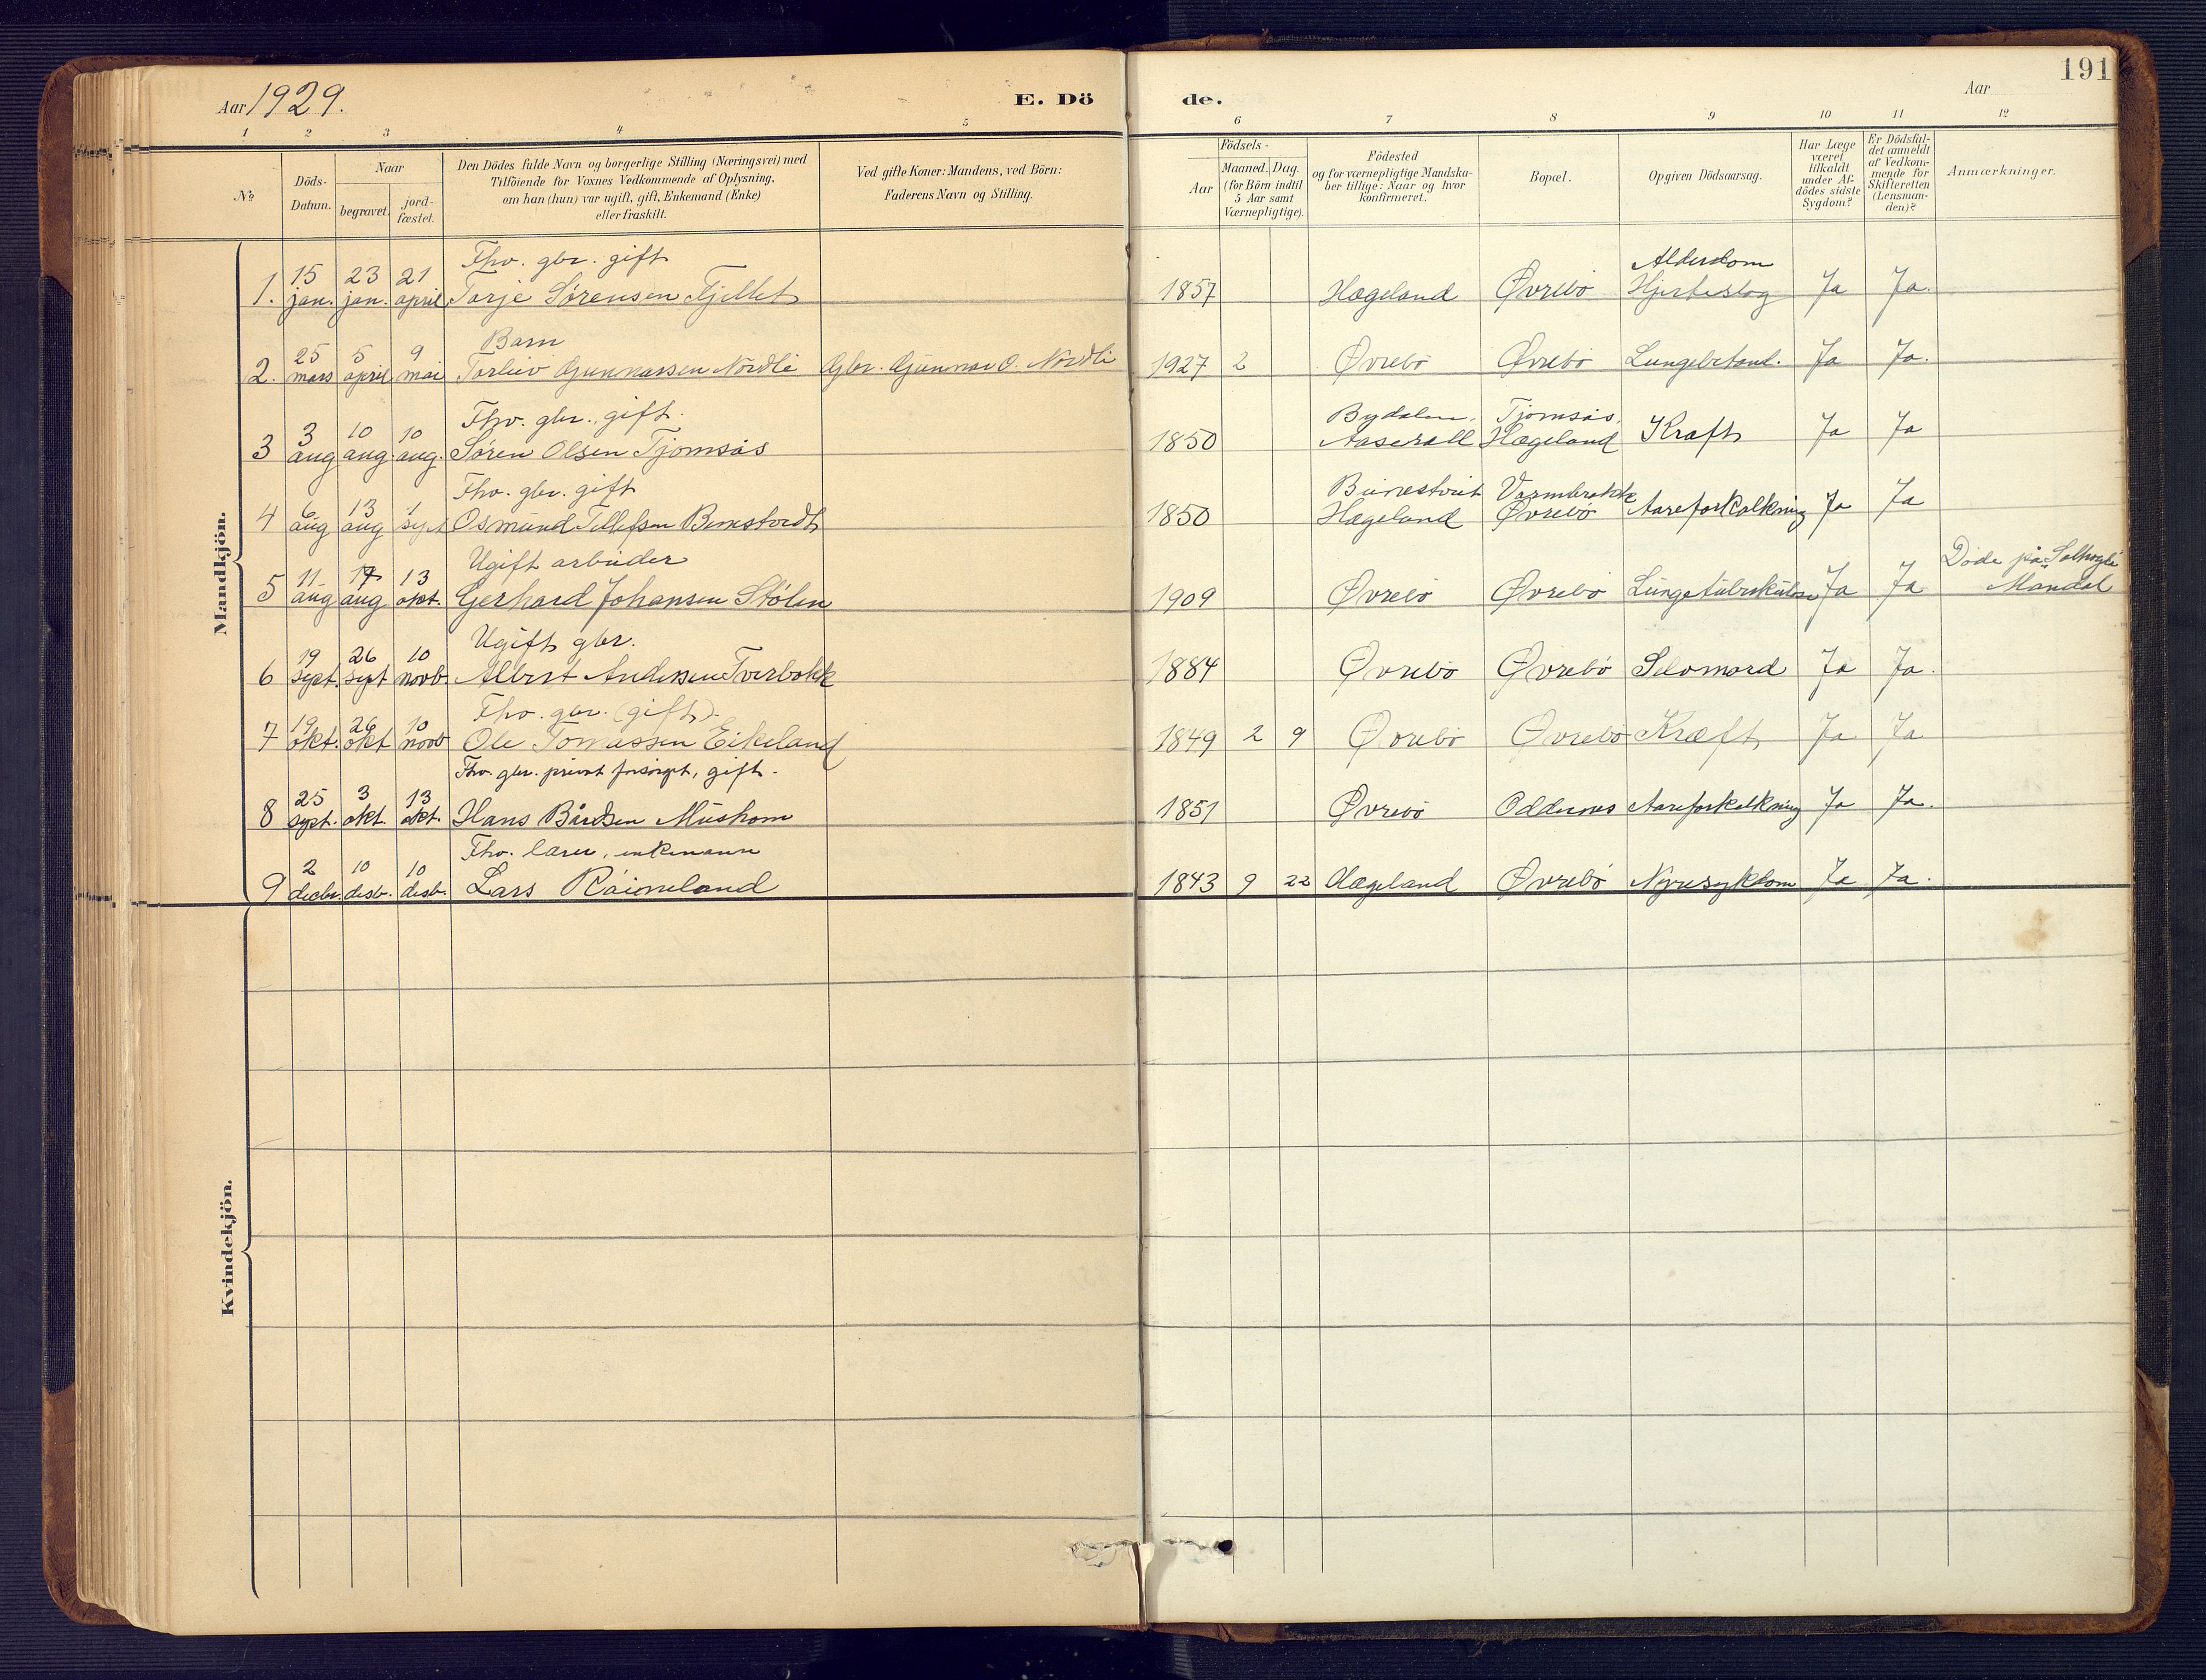 191
Aar 1929.
E. Dö de.
Aar
1 2 3 4 5 6 7 8 9 10 11 12
№
Döds-Datum.
Naar
begravet.
jord-fæstet.
Den Dödes fulde Navn og borgerlige Stilling (Næringsvei) med
Tilföiende for Voxnes Vedkommende af Oplysning,
om han (hun) var ugift, gift, Enkemand (Enke)
eller fraskilt.
Ved gifte Koner: Mandens, ved Börn:
Faderens Navn og Stilling.
Födsels-
Aar
Maaned. Dag.
(for Börn indtil
5 Aar samt
Værnepligtige).
Födested
og for værnepligtige Mandska-
ber tillige: Naar og hvor
konfirmeret.
Bopæl.
Opgiven Dödsaarsag.
Har Læge
været
tilkaldt
under Af-
dödes sidste
Sygdom?
Er Dödsfal-
det anmeldt
af Vedkom-
mende for
Skifteretten
(Lensman-
den)?
Anmærkninger.
Mandkjön.
15 23 21 Fhv. gbr. gift Alderdom
1. jan. jan. april Torje Sørensen Fjellet 1857 Hægeland Øvrebö Hjerteslag Ja Ja.
25 5 9 Barn
2. mars april mai Torleiv Gunnarsen Nordli Gbr. Gunnar O. Nordli 1927 2 Øvrebö Øvrebö Lungebetend. Ja Ja.
3 10 10 Fhv. gbr. gift. Bydalen, Tjomsås,
3 aug aug. aug. Sören Olsen Tjomsås 1850 Aaserall Hægeland Kræft Ja Ja
6 13 1 Fhv. gbr. gift
4 aug aug sept Osmund Tellefsen 1850 Hægeland Øvrebö Aareforkalkning Ja Ja
11 17 13 Ugift arbeider Döde på
5 aug aug okt. Gerhard Johansen Stölen 1909 Øvrebö Øvrebö Lungetuberkulose Ja Ja Mandal
19 26 10 Ugift gbr.
6 sept. sept novb. Albert Andersen Tverbakk 1884 Øvrebö Øvrebö Selvmord Ja Ja.
19 26 10 Fhv. gbr. (gift).
7 okt. okt novb Ole Tomassen Eikeland 1849 2 9 Øvrebö Øvrebö Kræft Ja Ja
25 3 13 Fhv. gbr. privat forsörget, gift.
8 sept. okt. okt. Hans Bårdsen Mushom 1851 Øvrebö Oddernes Aareforkalkning Ja Ja.
2 10 10 Fhv. lærer, enkemann
9 decbr. desb. desb. Lars 1843 9 22 Hægeland Øvrebö Nyresykdom Ja Ja.
Kvindekjön.